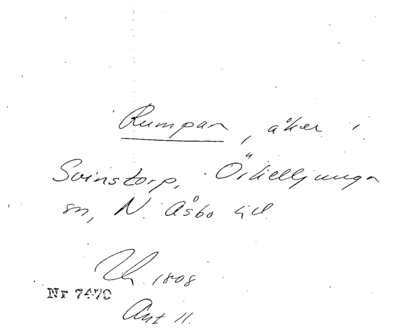 Rumpan, åker i
Svinstorp, Örkelljunga
sn, N. Åsbo hd.
1808
Nr 7470
Ant 11.